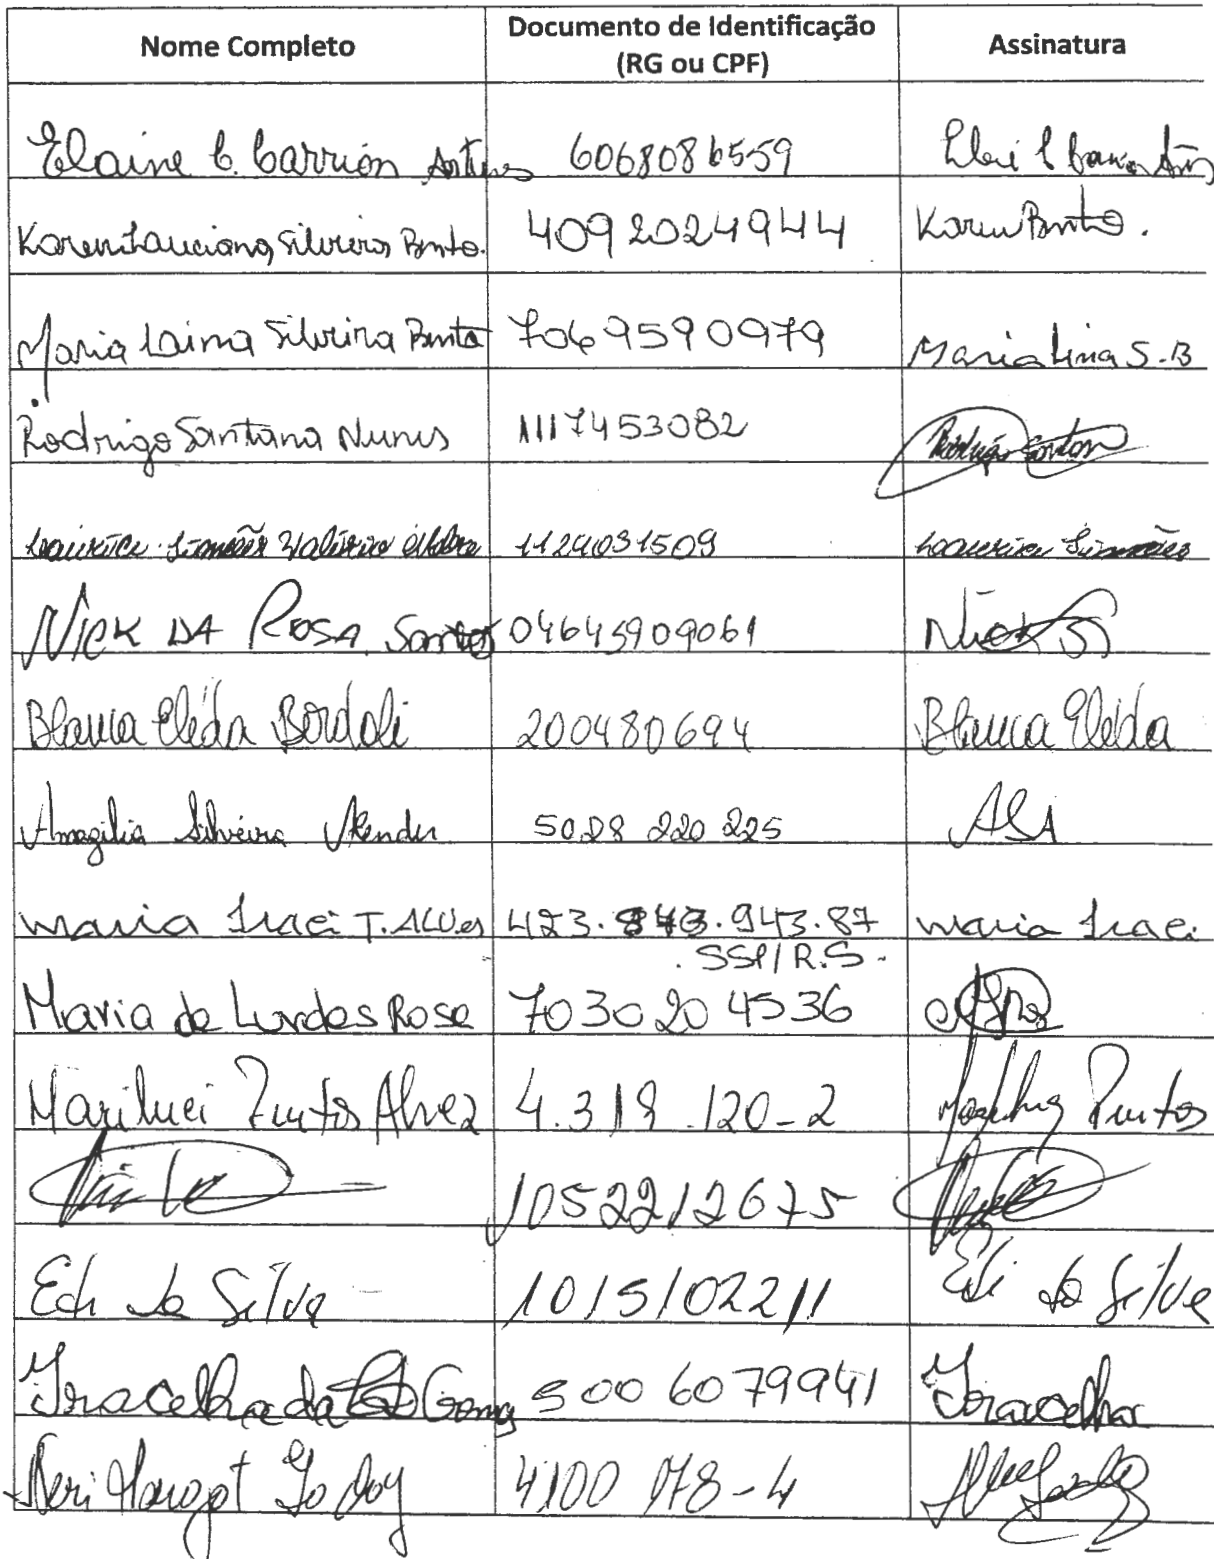 Nome Completo Documento de Identificação (RG ou CPF) Assinatura
Elaine C. Carrion Antunes 6068086559
Karen Lauciana Silveira Bento. 4092024944 Karen Bento.
Maria Laina Silveira Bento 7069590979 Maria Lina S.B
Rodrigo Santana Nunes 1117453082 Rodrigo Santan
Simões Valério 1124031509 Simões
Nick DA ROSA Santos 04645909061 Nick
Blanca Eleda Bordoli 200480694 Blanca Eleda
Amazilia Silveira Mendes 5028 220 225 ALA
maria Iraci T. Alves 423. 943.87 maria Iraci
SSP/R.S.
Maria de Lurdes Rosa 703020 4536
Mariluci Puntos Alvez 4.319.120-2 Puntos
1052212675
Edi da Silva 1015102211 Edi da Silva
Iracelha da Gomg 5006079941 Iracelha
Neri Margot Godoy 4100 078-4